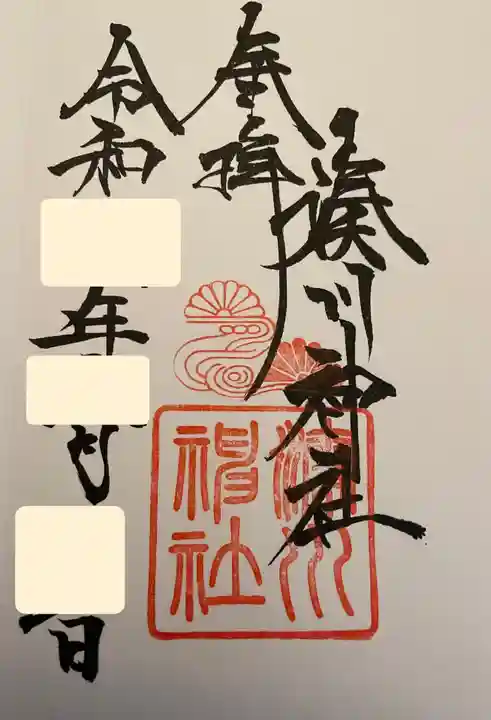 奉拝
湊川神社
湊川
神社
令和
年
月
日